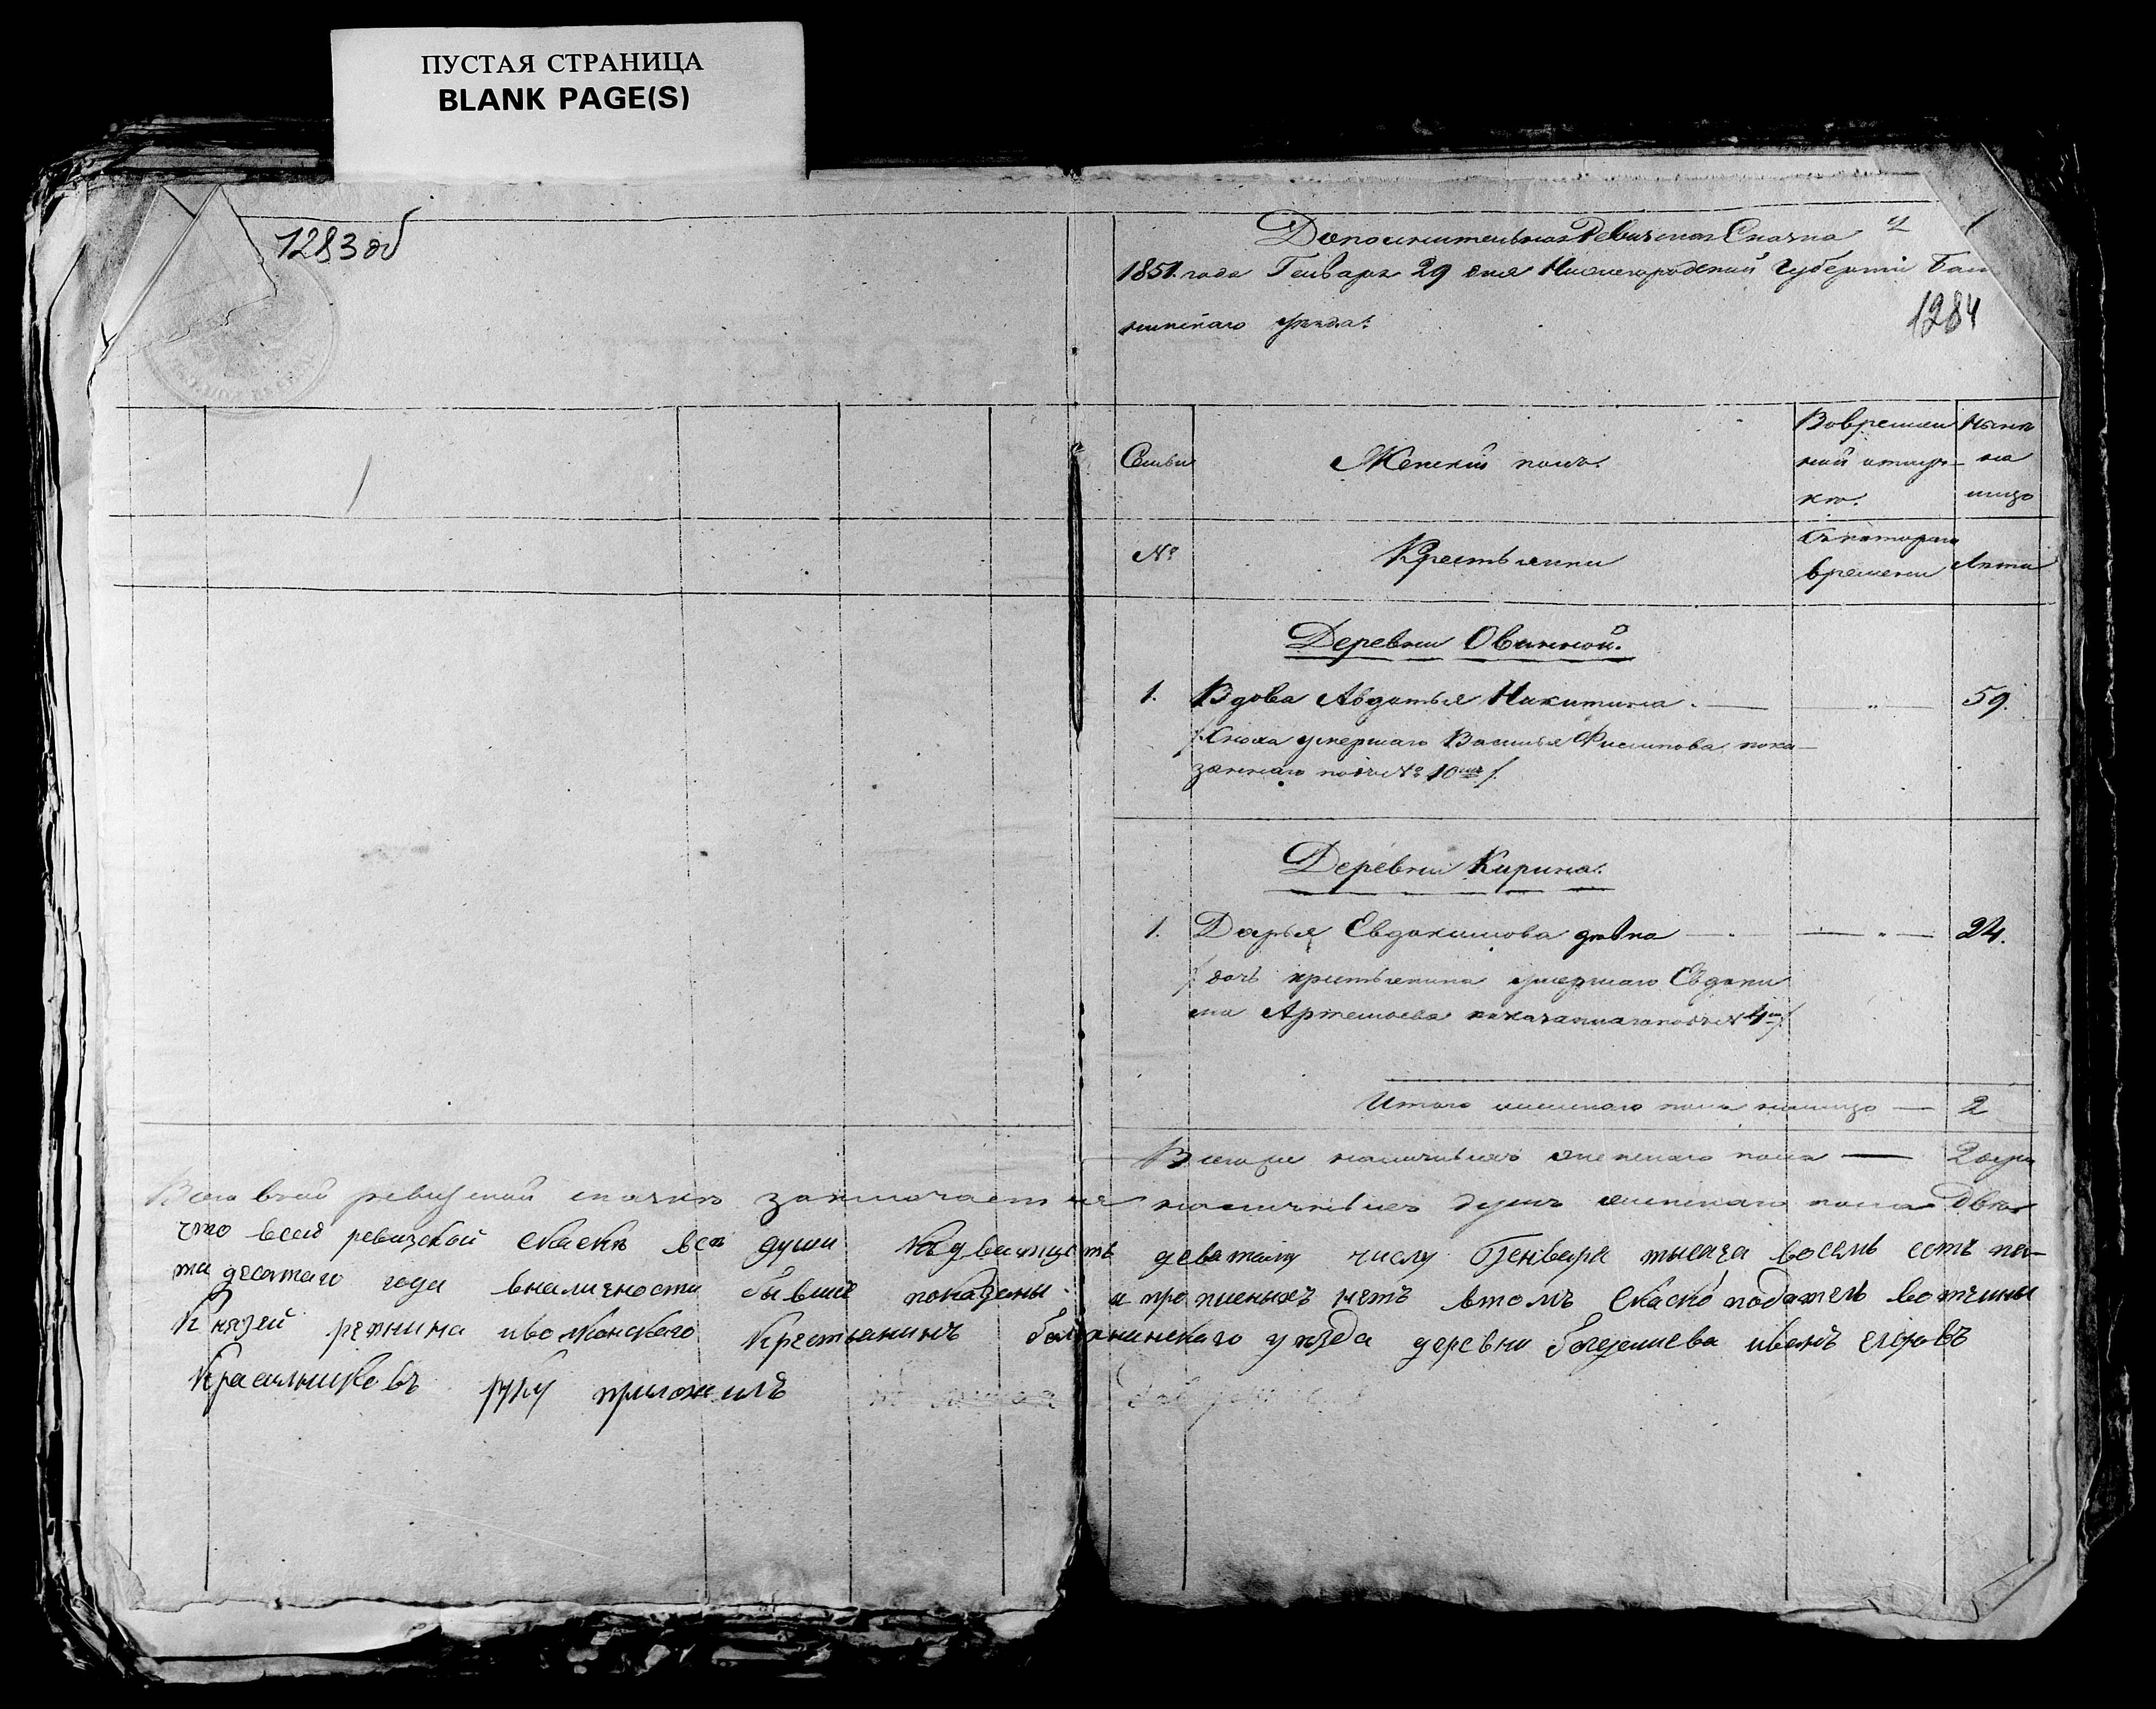 ПУСТАЯ СТРАНИЦА
BLANK PAGE(S)
1283 об
Дополнительная Ревизская Сказка
1851. года Генваря 29 дня Нижегородской Губерніи Бала
хнинскаго уезда:
1284
Семьи
Женскій полъ.
Во времен
ной отлуч-
кѣ.
Нынѣ
на
лицо
№
Крестьянки
Съ котораго
времени
Лѣта
Деревни Овинной.
1. Вдова Авдотья Никитина. — — „ — 59.
/ Сноха умершаго Василья Филипова, пока-
заннаго подъ № 10мъ /.
Деревни Кирина.
1. Дарья Евдокимова дѣвка — — „ — 24.
/ дочь крестьянина умершаго Евдоки
ма Артемьева показаннаго подъ № 4мъ /
Итого женскаго пола налицо — 2
Всего же наличныхъ женскаго пола — 2 души
Всего в сей ревизской сказкѣ заключается наличныхъ душъ женскаго пола Двѣ
что всей ревизской скаски всѣ души къ двацеть девятому числу Генваря тысеча восемь сотъ пе-
ти десятаго года вналичности бывшие показаны и пропиеныхъ нетъ втомъ скаско податель вотчины
Князей репнина иволконскаго Крестьянинъ балахнинскаго уѣзда деревни иванъ егоровъ
Красильниковъ руку приложилъ